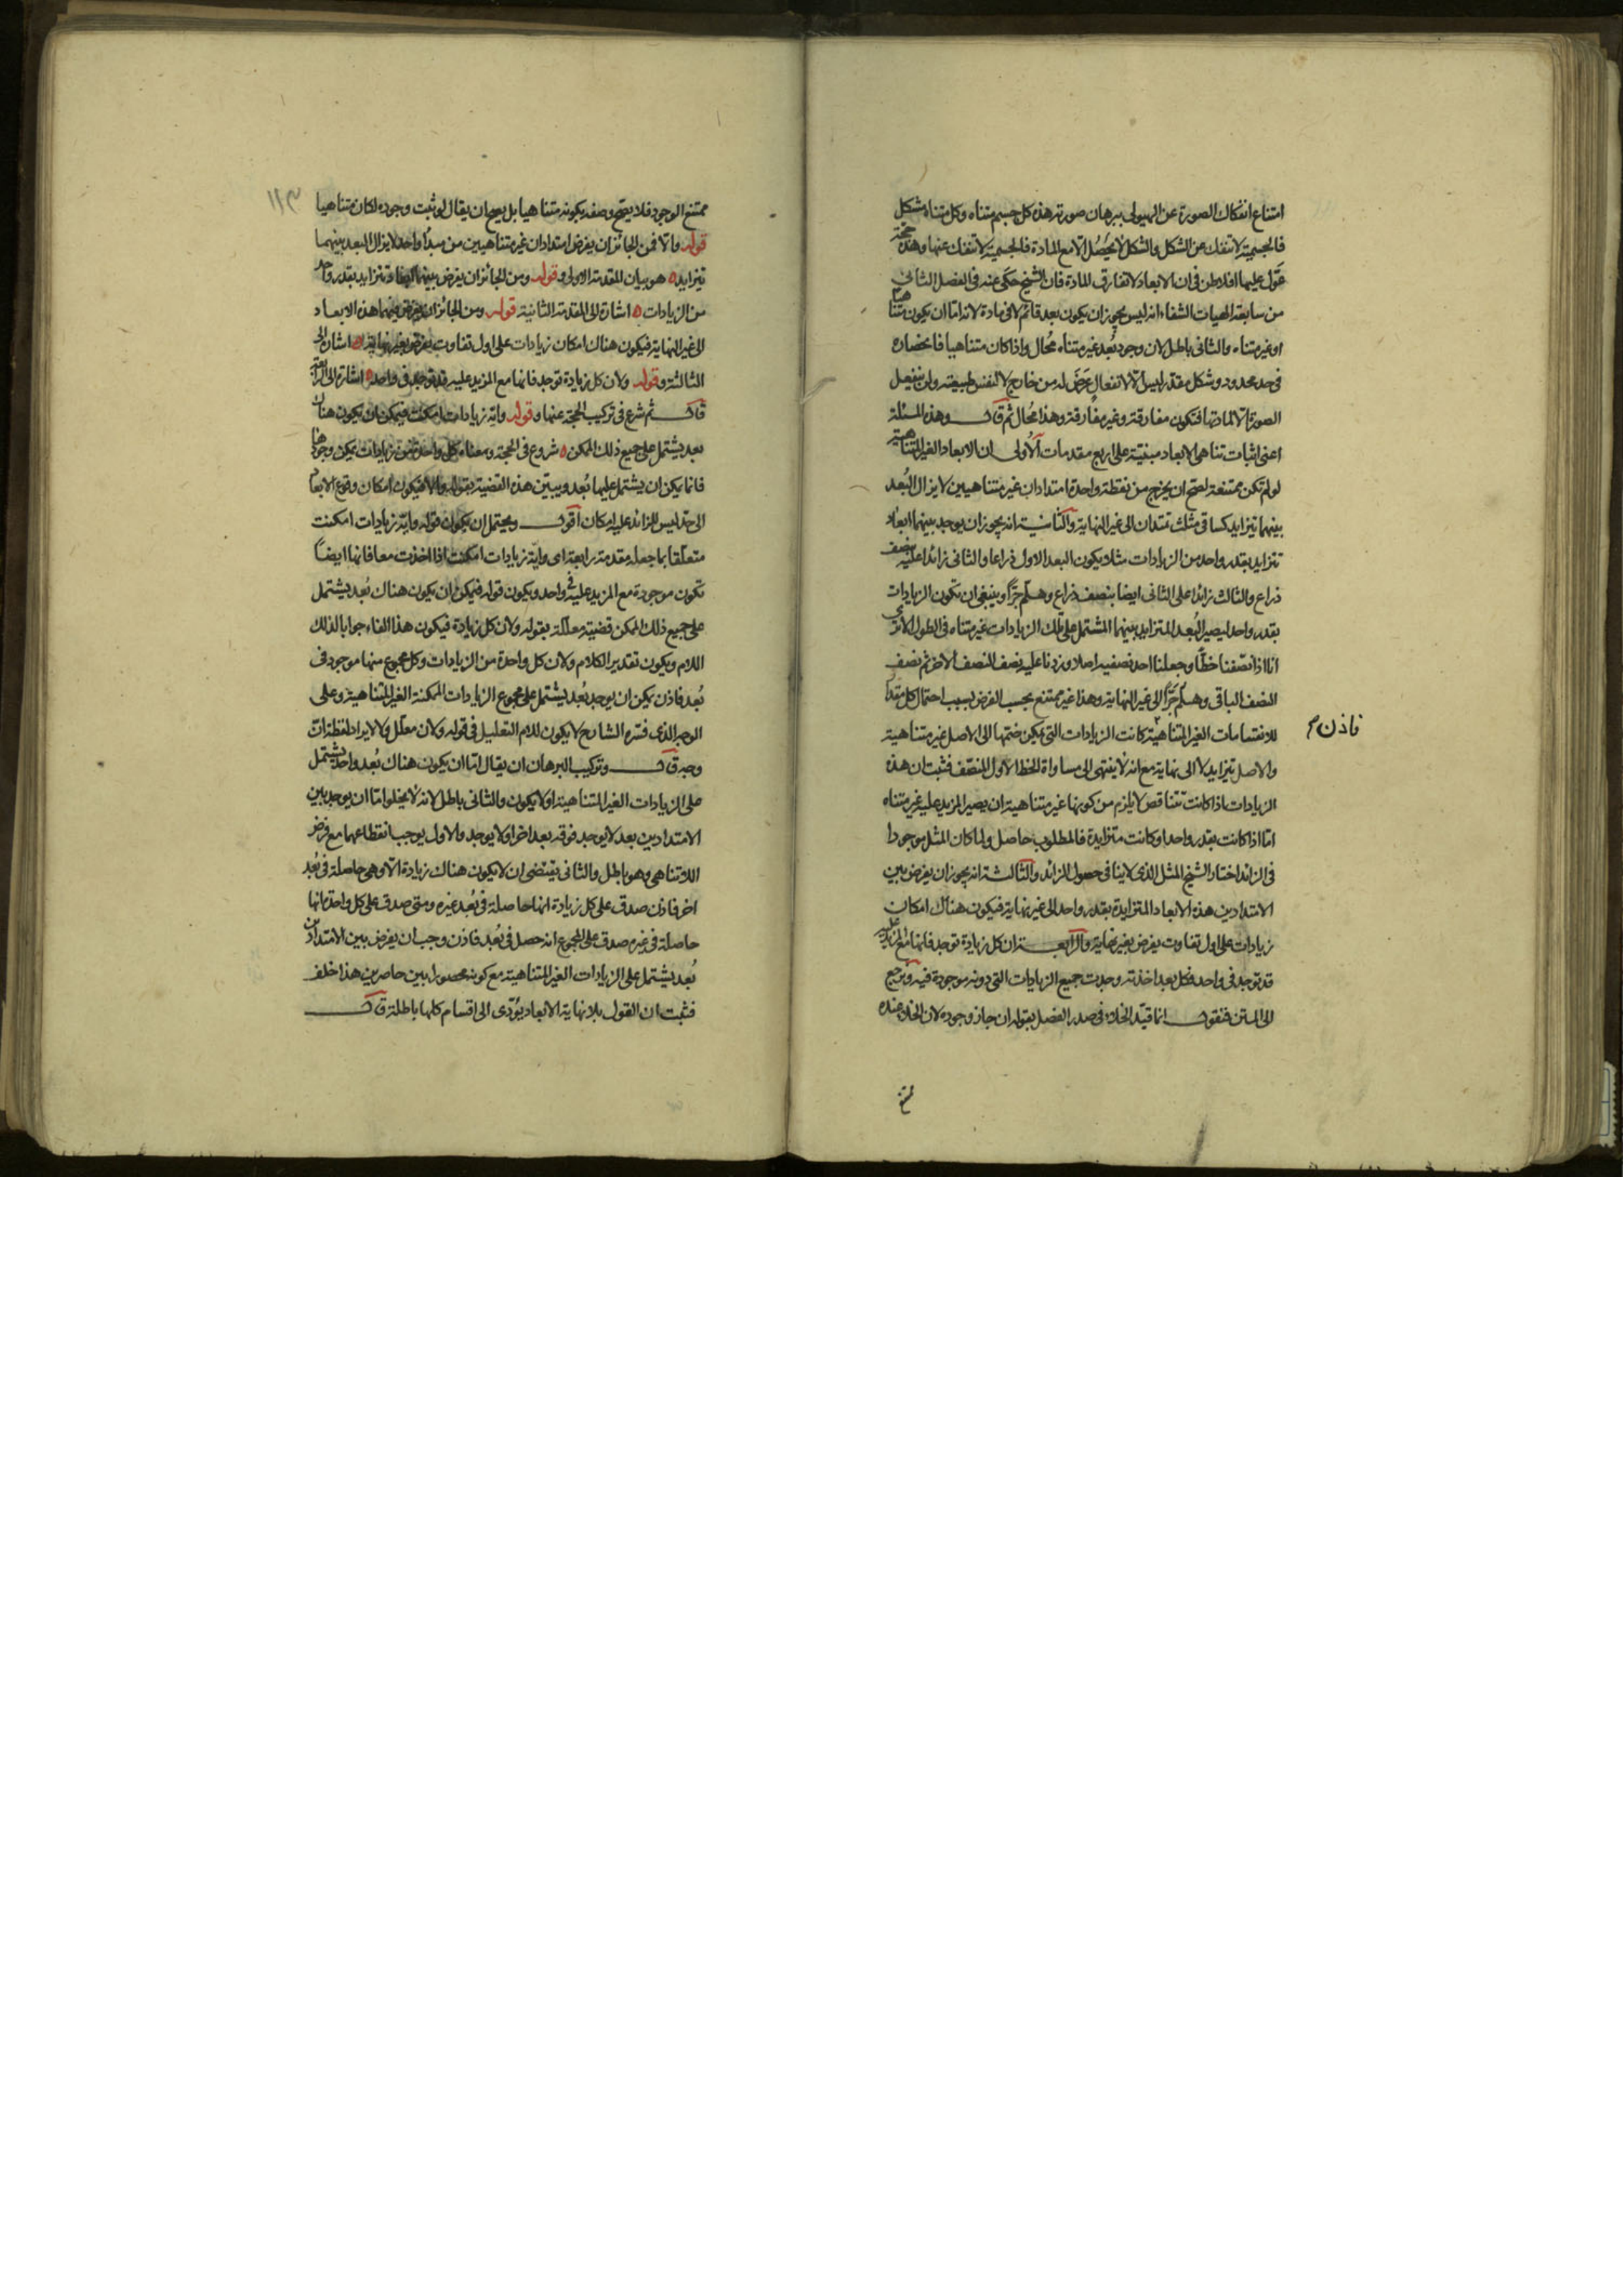 امتناع انفكاك الصورة عن الهيولى ببرهان صورته هذه كل جسم متناه وكل متناه مشكل
فالجسمية لا تنفك عن الشكل والشكل لا يحصل الا مع المادة فالجسمية لا تنفك عنها وهذه حجة
عول عليها افلاطن فى ان الابعاد لا تفارق المادة فان الشيخ حكى عنه فى الفصل الثانى
من سابعة الهيات الشفاء انه ليس يجوز ان يكون بعد قائم لا فى مادة لانه اما ان يكون متناهيا
او غير متناه والثانى باطل لان وجود بعد غير متناه محال واذا كان متناهيا فانحصاره
فى حد محدود وشكل مقدر ليس الا لانفعال عرض له من خارج لا لنفس طبيعته ولن ينفعل
الصورة الا لمادتها فتكون مفارقة وغير مفارقة وهذا محال ثم قال وهذه المسئلة
اعنى اثبات تناهى الابعاد مبنية على اربع مقدمات الاولى ان الابعاد الغير المتناهية
لو لم تكن ممتنعة لصح ان يخرج من نقطة واحدة امتدادان غير متناهيين لا يزال البعد
بينهما يتزايد كساقى مثلث تمتدان الى غير النهاية والثانية انه يجوز ان يوجد بينهما ابعاد
تتزايد بقدر واحد من الزيادات مثلا يكون البعد الاول ذراعا والثانى زائدا عليه بنصف
ذراع والثالث زائدا على الثانى ايضا بنصف ذراع وهلم جرا وينبغى ان تكون الزيادات
بقدر واحد ليصير البعد المتزايد بينهما المشتمل على تلك الزيادات غير متناه فى الطول الا ترى
انا اذا نصفنا خطا وجعلنا احد نصفيه اصلا وزدنا عليه نصف النصف الاخر ثم نصف
النصف الباقى وهلم جرا الى غير النهاية وهذا غير ممتنع بحسب الفرض بسبب احتمال كل مقدار
للانقسامات الغير المتناهية كانت الزيادات التى يمكن ضمها الى الاصل غير متناهية
والاصل يتزايد لا الى نهاية مع انه لا ينتهى الى مساواة الخط الاول المنصف فثبت ان هذه
الزيادات اذا كانت تتناقص لا يلزم من كونها غير متناهية ان يصير المزيد عليه غير متناه
اما اذا كانت بقدر واحد او كانت متزايدة فالمطلوب حاصل ولما كان المثل موجودا
فى الزائد اختار الشيخ المثل الذى لا ينافى حصول الزائد والثالثة انه يجوز ان يفرض بين
الامتدادين هذه الابعاد المتزايدة بقدر واحد الى غير نهاية فيكون هناك امكان
زيادات على اول تفاوت يفرض بغير نهاية والرابعة ان كل زيادة توجد فانها مع المزيد عليه
قد توجد فى واحد فكل بعد اخذته وجدت جميع الزيادات التى دونه موجودة فيه ونرجع
الى المتن فنقول انما قيد الخلاء فى صدر الفصل بقوله ان جاز وجوده لان الخلاء عنده
فاذن م
ممتنع
١١٣
ممتنع الوجود فلا يصح وصفه بكونه متناهيا بل يصح ان يقال لو ثبت وجوده لكان متناهيا
قوله والا فمن الجائز ان يفرض امتدادان غير متناهيين من مبدأ واحد لا يزال البعد بينهما
يتزايد ه هو بيان المقدمة الاولى وقوله ومن الجائز ان يفرض بينهما ابعاد تتزايد بقدر واحد
من الزيادات ه اشارة الى المقدمة الثانية قوله ومن الجائز ان يفرض بينهما هذه الابعاد
الى غير النهاية فيكون هناك امكان زيادات على اول تفاوت يفرض بغير نهاية ه اشارة الى
الثالثة وقوله ولان كل زيادة توجد فانها مع المزيد عليه قد توجد فى واحد ه اشارة الى الرابعة
قال ثم شرع فى تركيب الحجة عنها وقوله واية زيادات امكنت فيمكن ان يكون هناك
بعد يشتمل على جميع ذلك الممكن ه شروع فى الحجة ومعناه كل واحدة من زيادات يمكن وجودها
فانما يمكن ان يشتمل عليها بعد ويبين هذه القضية بقوله والا فيكون امكان وقوع الابعاد
الى حد ليس للزائد عليه امكان اقول ويحتمل ان يكون قوله واية زيادات امكنت
متعلقا بما جعله مقدمة رابعة اى واية زيادات امكنت اذا اخذت معا فانها ايضا
تكون موجودة مع المزيد عليه فى واحد ويكون قوله فيمكن ان يكون هناك بعد يشتمل
على جميع ذلك الممكن قضية معللة بقوله ولان كل زيادة فيكون هذا الفاء جوابا لذلك
اللام ويكون تقدير الكلام ولان كل واحدة من الزيادات وكل مجموع منها موجود فى
بعد فاذن يمكن ان يوجد بعد يشتمل على مجموع الزيادات الممكنة الغير المتناهية وعلى
الوجه الذى فسره الشارح لا يكون للام التعليل فى قوله ولان معلل ولا لايراد لفظة ان
وجه قال وتركيب البرهان ان يقال اما ان يكون هناك بعد واحد يشتمل
على الزيادات الغير المتناهية او لا يكون والثانى باطل لانه لا يخلوا اما ان يوجد بين
الامتدادين بعد لا يوجد فوقه بعد اخر او لا يوجد والاول يوجب انقطاعهما مع فرض
اللاتناهى وهو باطل والثانى يقتضى ان لا يكون هناك زيادة الا وهى حاصلة فى بعد
اخر فاذن صدق على كل زيادة انها حاصلة فى بعد غيره ومتى صدق على كل واحد انها
حاصلة فى غيره صدق على المجموع انه حصل فى بعد فاذن وجب ان يفرض بين الامتدادين
بعد يشتمل على الزيادات الغير المتناهية مع كونه محصورا بين حاصرين هذا خلف
فثبت ان القول بلا نهاية الابعاد يؤدى الى اقسام كلها باطلة قال